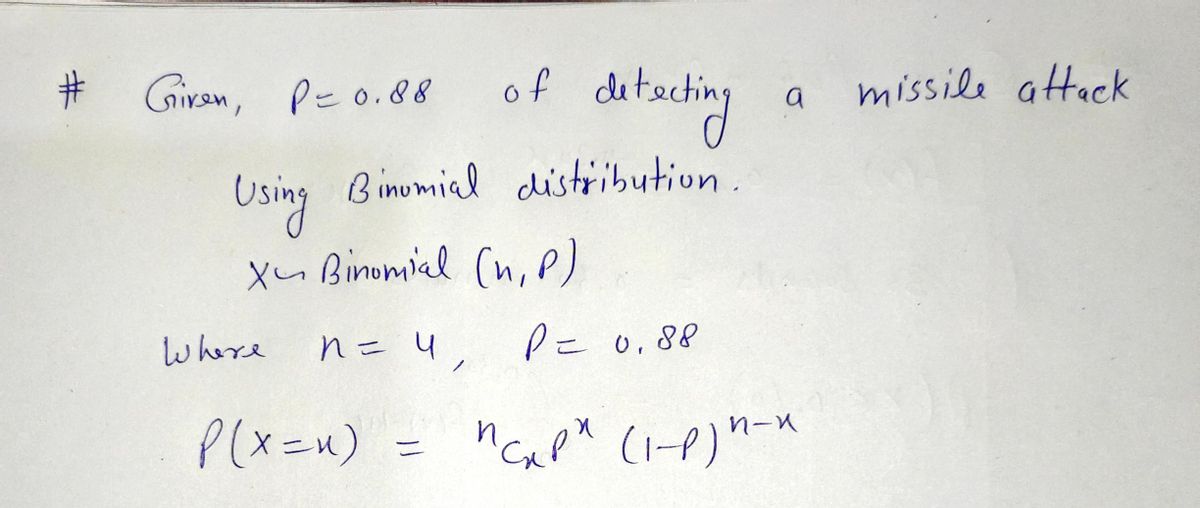 # Given, P = 0.88 of detecting a missile attack
Using Binomial distribution.
X ~ Binomial (n, P)
Where n = 4, P = 0.88
P(X = x) = ⁿCₓ Pˣ (1-P)ⁿ⁻ˣ